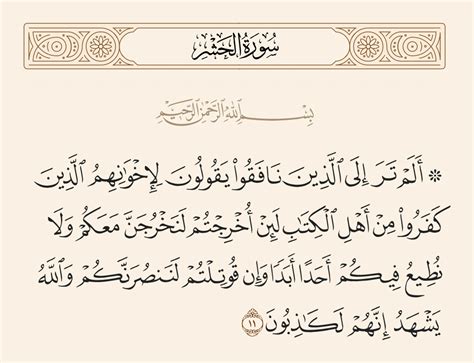 سُورَةُ الحَشْرِ
بِسْمِ اللَّهِ الرَّحْمَٰنِ الرَّحِيمِ
۞ أَلَمْ تَرَ إِلَى ٱلَّذِينَ نَافَقُوا۟ يَقُولُونَ لِإِخْوَٰنِهِمُ ٱلَّذِينَ
كَفَرُوا۟ مِنْ أَهْلِ ٱلْكِتَٰبِ لَئِنْ أُخْرِجْتُمْ لَنَخْرُجَنَّ مَعَكُمْ وَلَا
نُطِيعُ فِيكُمْ أَحَدًا أَبَدًا وَإِن قُوتِلْتُمْ لَنَنصُرَنَّكُمْ وَٱللَّهُ
يَشْهَدُ إِنَّهُمْ لَكَٰذِبُونَ ١١